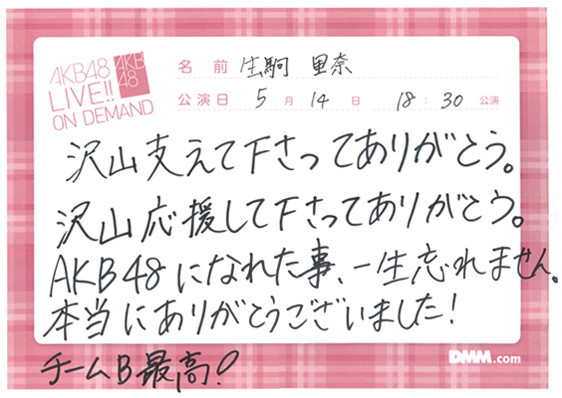 AKB48
LIVE!!
ON DEMAND
AKB
48
名前 生駒 里奈
公演日 5月14日 18:30公演
沢山支えて下さってありがとう。
沢山応援して下さってありがとう。
AKB48になれた事、一生忘れません。
本当にありがとうございました!
チームB最高!
DMM.com